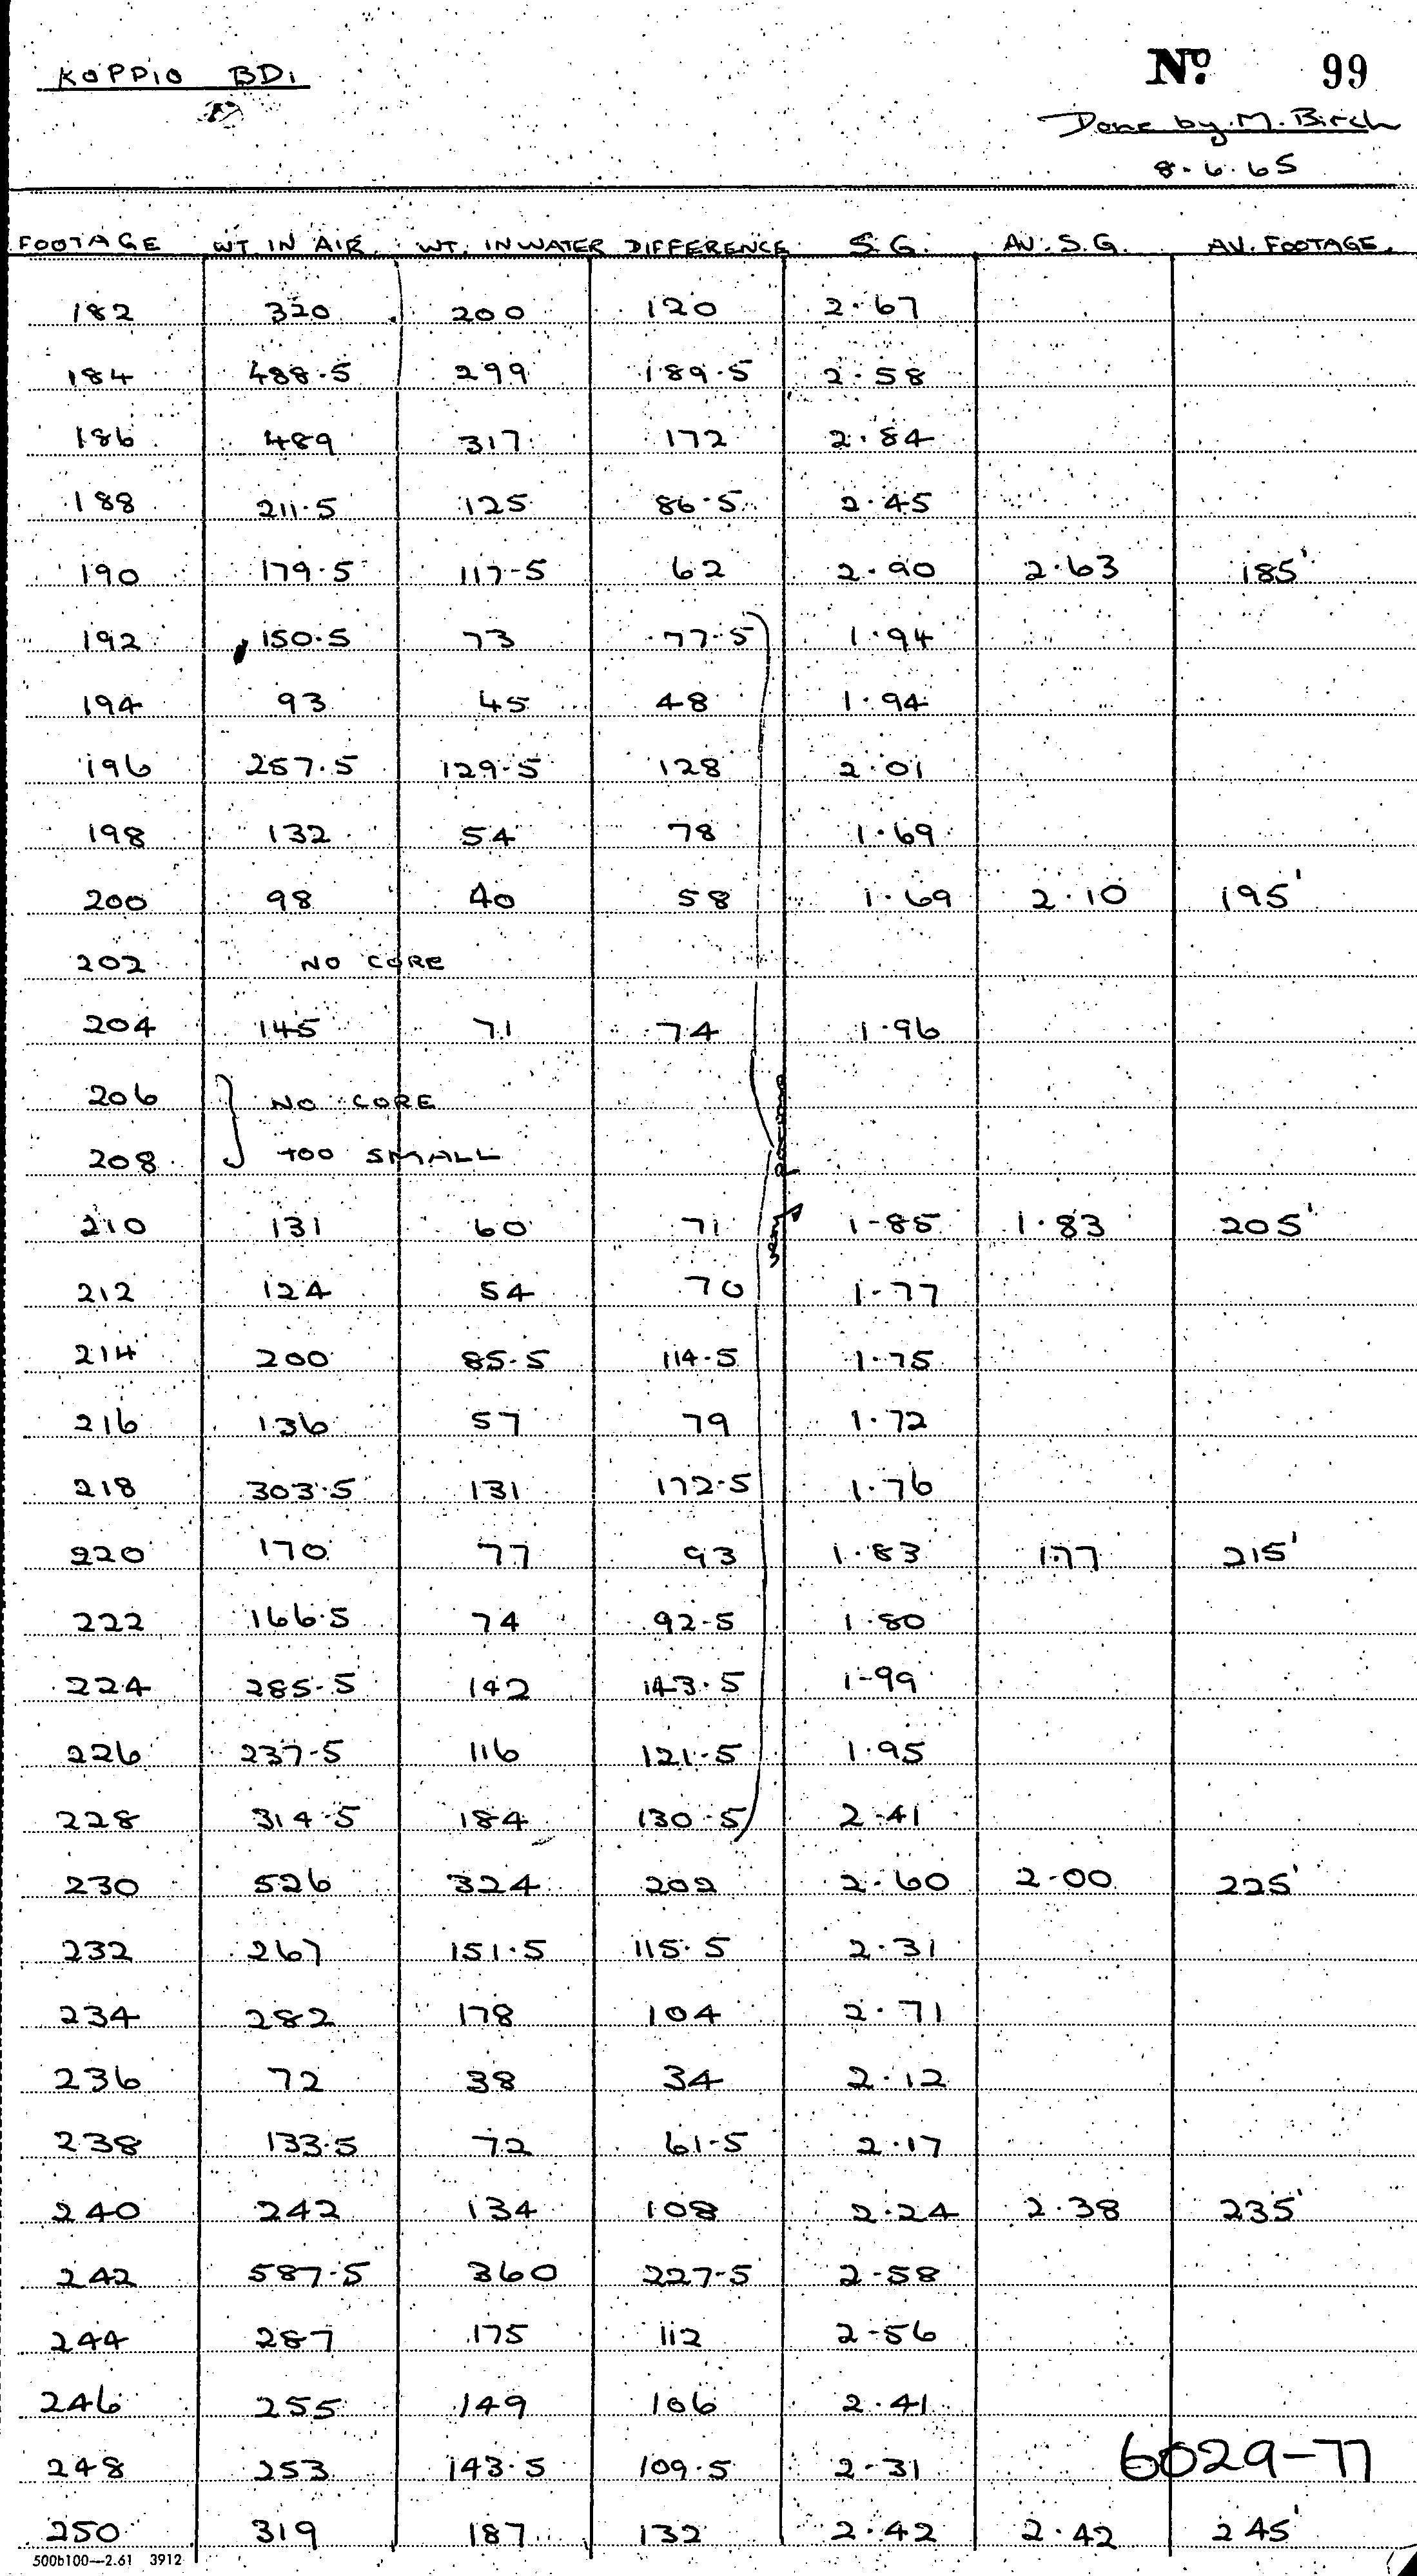 KOPPIO BD1
No. 99
Done by M. Birch
8.6.65
FOOTAGE WT. IN AIR WT. IN WATER DIFFERENCE S.G. AV. S.G. AV. FOOTAGE.
182 320 200 120 2.67
184 488.5 299 189.5 2.58
186 489 317 172 2.84
188 211.5 125 86.5 2.45
190 179.5 117-5 62 2.90 2.63 185'
192 150.5 73 77.5 1.94
194 93 45 48 1.94
196 257.5 129.5 128 2.01
198 132 54 78 1.69
200 98 40 58 1.69 2.10 195'
202 NO CORE
204 145 71 74 1.96
206 NO CORE
208 TOO SMALL
210 131 60 71 1-85 1.83 205'
212 124 54 70 1-77
214 200 85.5 114.5 1.75
216 136 57 79 1.72
218 303.5 131 172.5 1.76
220 170 77 93 1.83 1.77 215'
222 166.5 74 92-5 1.80
224 285-5 142 143.5 1-99
226 237-5 116 121-5 1.95
228 314-5 184 130-5 2-41
230 526 324 202 2-60 2-00 225'
232 267 151.5 115.5 2.31
234 282 178 104 2.71
236 72 38 34 2.12
238 133.5 72 61-5 2.17
240 242 134 108 2.24 2.38 235'
242 587-5 360 227-5 2-58
244 287 175 112 2-56
246 255 149 106 2.41
248 253 143.5 109.5 2-31
6029-77
250 319 187 132 2.42 2.42 245'
500b100—2.61 3912